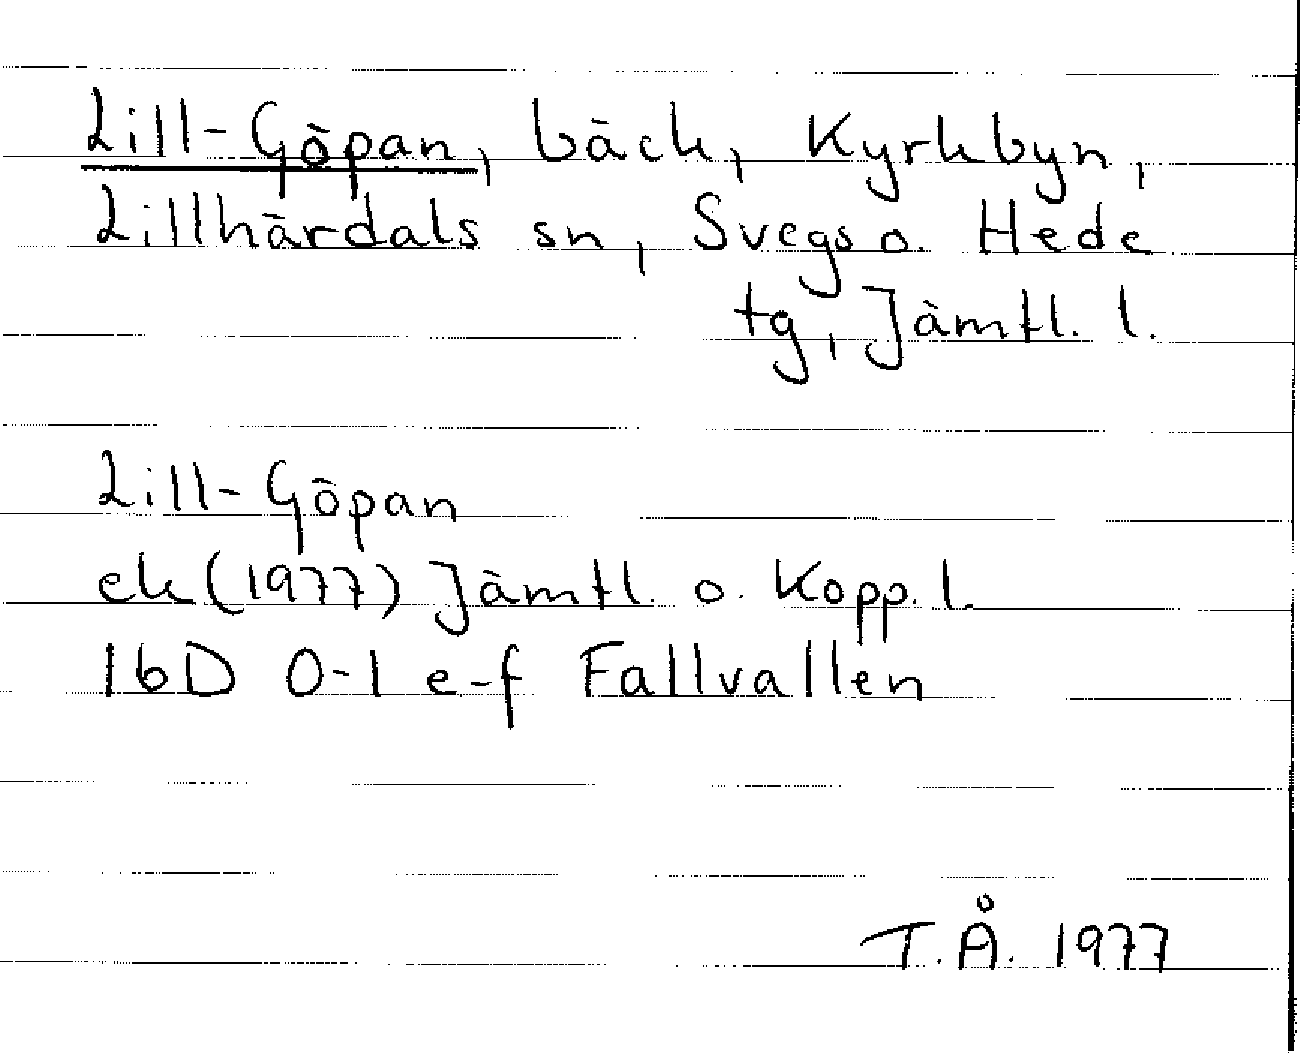 Lill-Göpan, bäck, Kyrkbyn,
Lillhärdals sn, Svegs o. Hede
tg, Jämtl. l.
Lill-Göpan
ek (1977) Jämtl. o. Kopp. l.
16D 0-1 e-f Fallvallen
T.Å. 1977